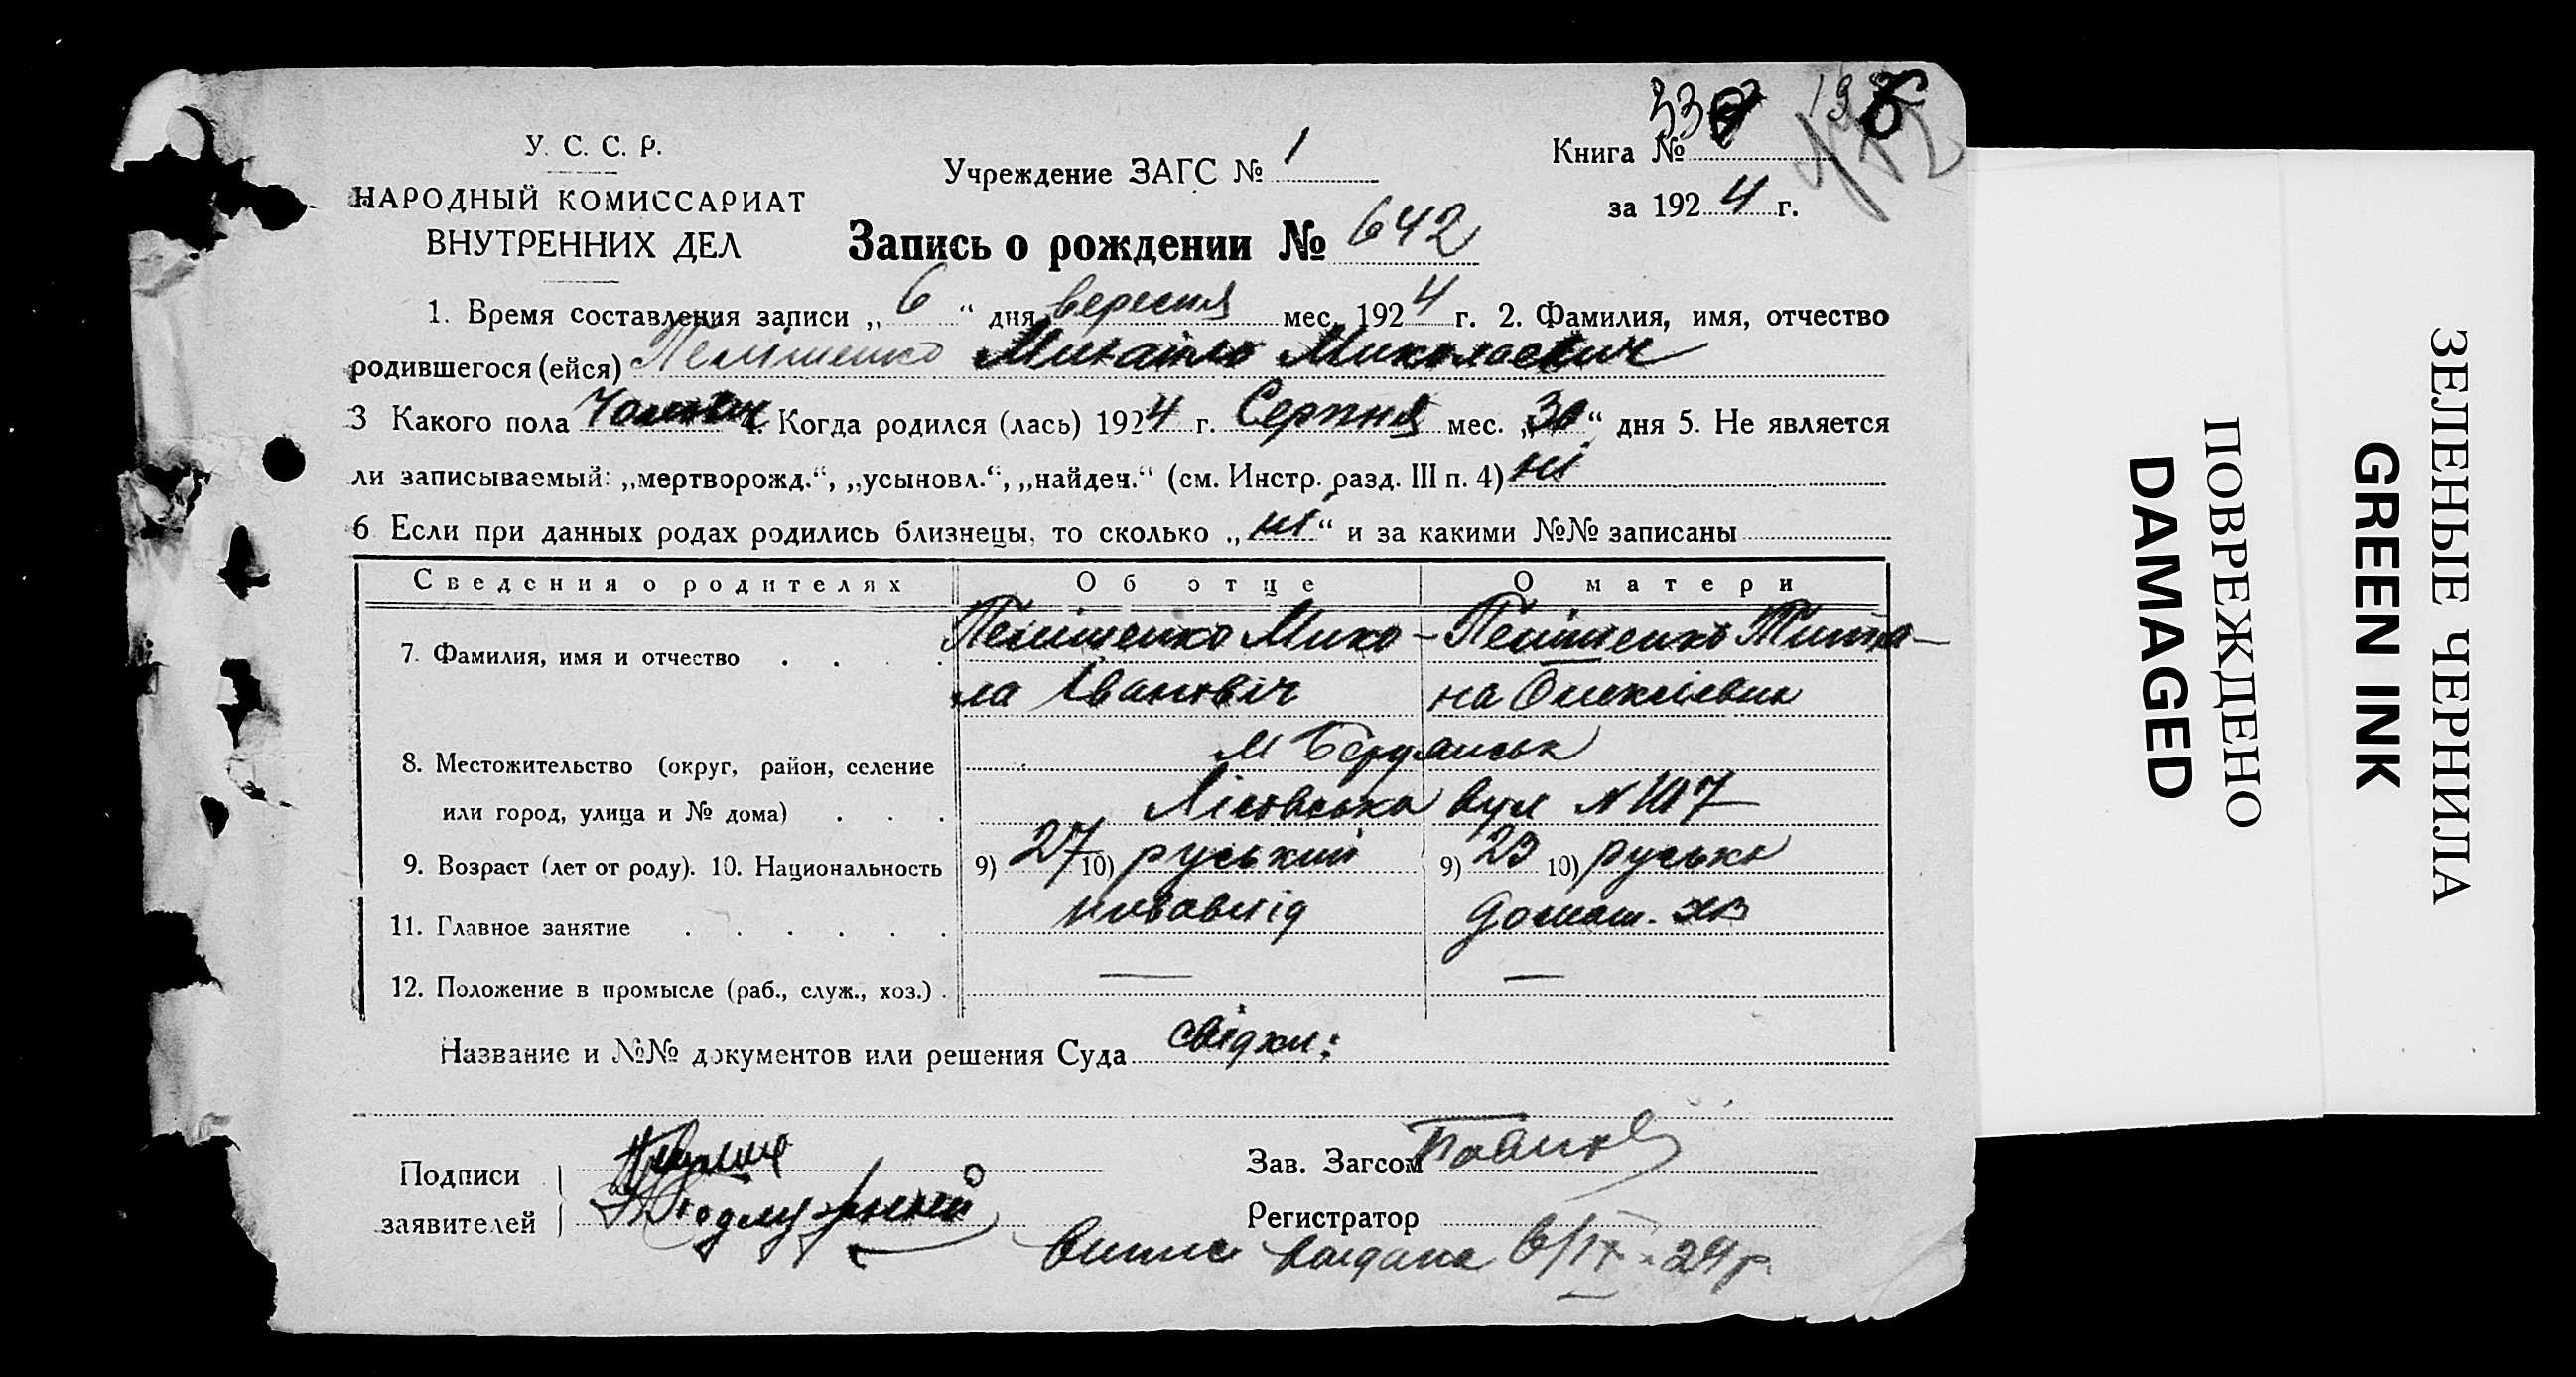 У. С. С. Р.
НАРОДНЫЙ КОМИССАРИАТ
ВНУТРЕННИХ ДЕЛ
Учреждение ЗАГС № 1
Книга №
за 1924 г.
Запись о рождении № 642
1. Время составления записи „ 6 “ дня вересня мес. 1924 г. 2. Фамилия, имя, отчество
родившегося (ейся) Михайло Миколаевич
3 Какого пола 4. Когда родился (лась) 1924 г. Серпня мес. „30“ дня 5. Не является
ли записываемый: „мертворожд.“, „усыновл.“, „найден.“ (см. Инстр. разд. III п. 4) ні
6 Если при данных родах родились близнецы, то сколько „ні“ и за какими №№ записаны
Сведения о родителях Об отце О матери
7. Фамилия, имя и отчество Мико-
ла Іванович на Олексіевна
8. Местожительство (округ, район, селение м Бердянськ
или город, улица и № дома) вул № 107
9. Возраст (лет от роду). 10. Национальность 9) 27 10) руський 9) 23 10) руська
11. Главное занятие інвалід домаш.
12. Положение в промысле (раб., служ., хоз.) — —
Название и №№ документов или решения Суда свідки:
Подписи
заявителей
Зав. Загсом
Регистратор
Випис видана 6/IX-24 р.
ЗЕЛЕНЫЕ ЧЕРНИЛА
GREEN INK
ПОВРЕЖДЕНО
DAMAGED